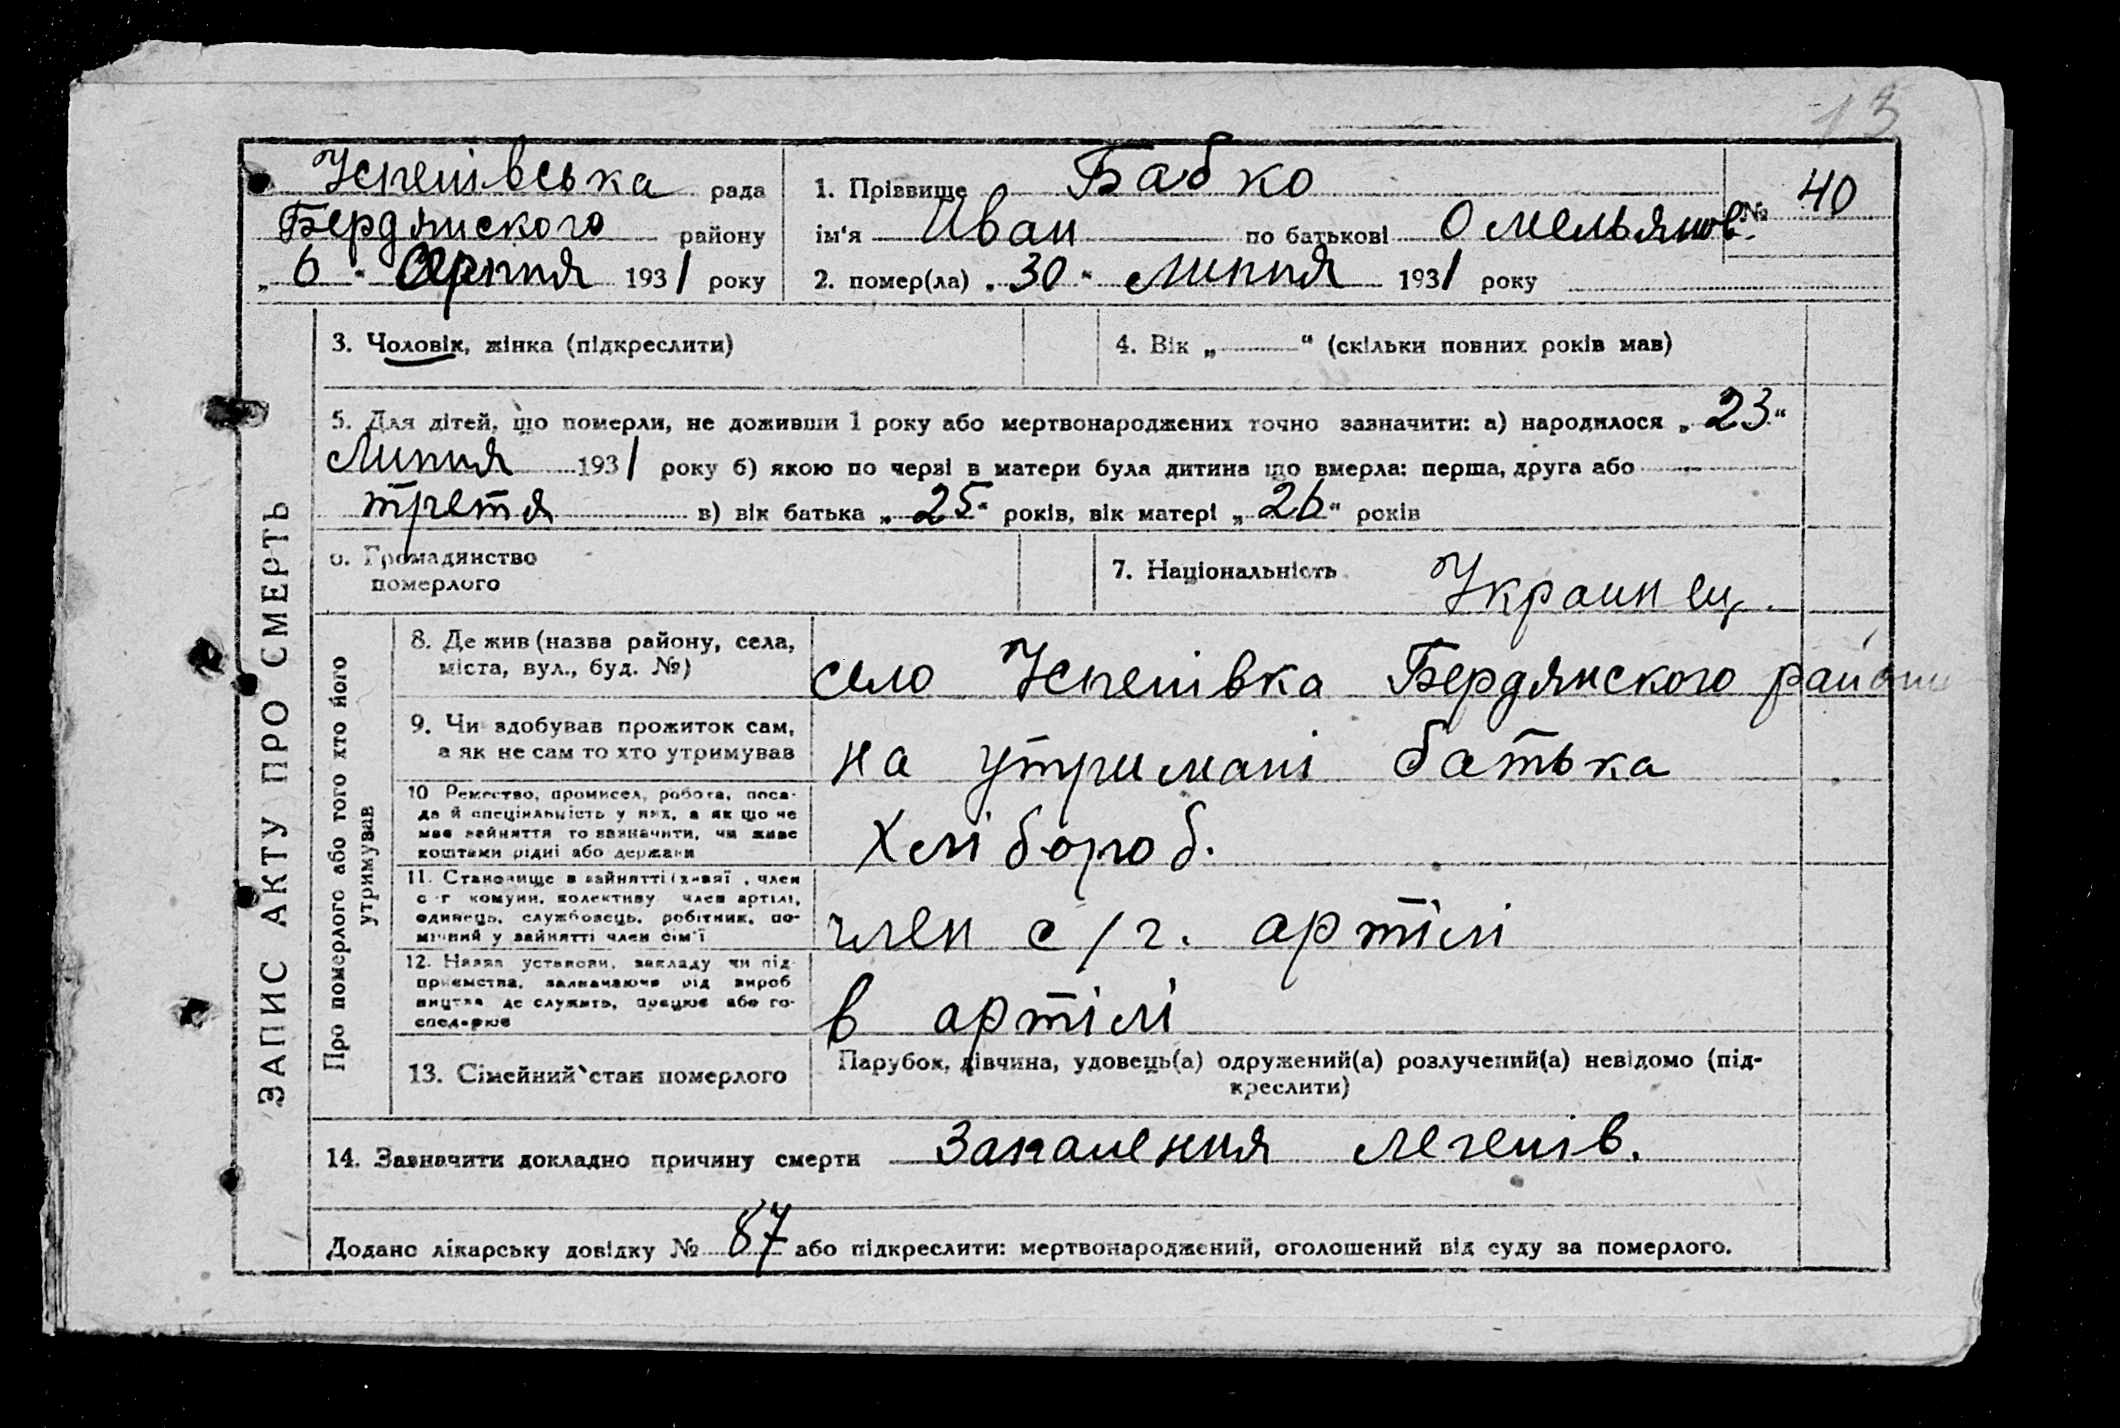 13
Успенівська рада
Бердянского району
„ 6 “ Серпня 1931 року
1. Прізвище Бабко
ім‘я Иван по батькові Омельянов.
№ 40
2. помер(ла) „ 30 “ Липня 1931 року
ЗАПИС АКТУ ПРО СМЕРТЬ
3. Чоловік, жінка (підкреслити)
4. Вік „ “ (скільки повних років мав)
5. Для дітей, що померли, не доживши 1 року або мертвонароджених точно зазначити: а) народилося „ 23 “
Липня 1931 року б) якою по черзі в матери була дитина що вмерла: перша, друга або
третя в) вік батька „ 25 “ років, вік матері „ 26 “ років
6. Громадянство
померлого
7. Національність Украинец.
Про померлого або того хто його
утримував
8. Де жив (назва району, села,
міста, вул., буд. №)
село Успенівка Бердянского району
9. Чи здобував прожиток сам,
а як не сам то хто утримував
на утримані батька
10 Ремество, промисел, робота, поса-
да й спеціяльність у них, а як що не
мав зайняття то зазначити, чи живе
коштами рідні або держави
Хлібороб.
11. Становище в зайнятті (хазяї , член
с-г комуни, колективу член артілі,
одинець, службовець, робітник, по-
мічний у зайнятті член сім‘ї
член с/г. артілі
12. Назва установи, закладу чи під-
приємства, зазначаючи рід вироб
ництва де служить, працює або го-
сподарює
в артілі
13. Сімейний стан померлого
Парубок, дівчина, удовець(а) одружений(а) розлучений(а) невідомо (під-
креслити)
14. Зазначити докладно причину смерти Запалення легенів.
Додано лікарську довідку № 87 або підкреслити: мертвонароджений, оголошений від суду за померлого.